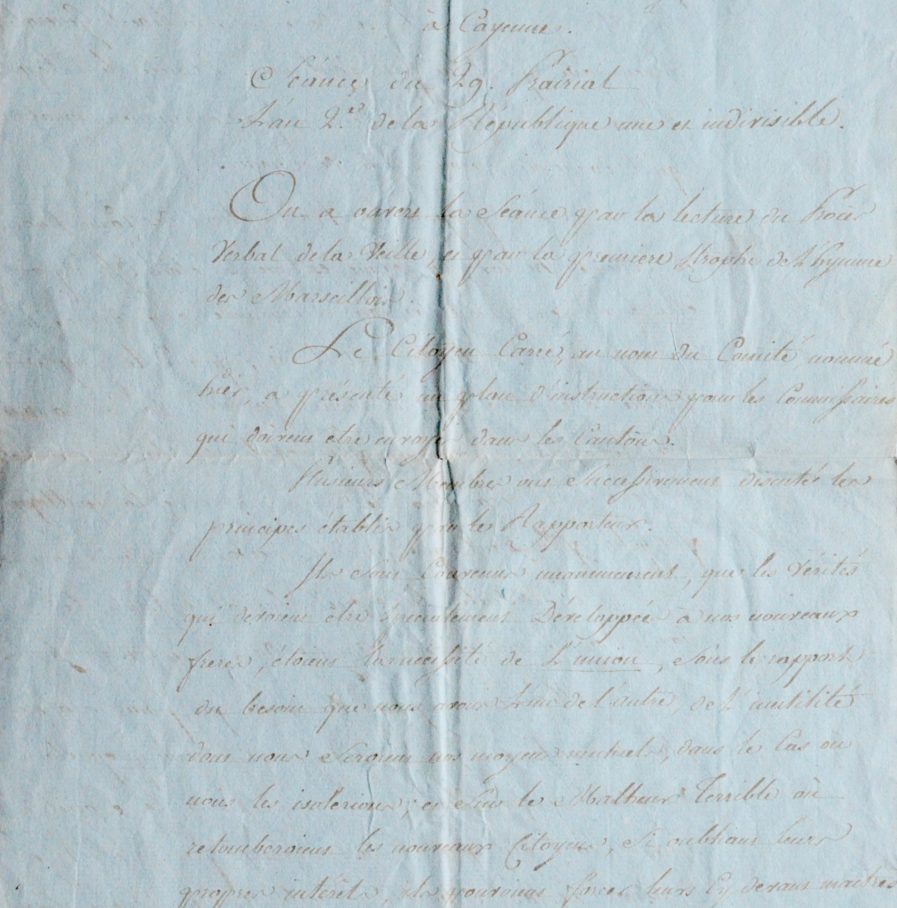 à Cayenne.
Séance du 29. Prairial
L'an 2.e de la République une et indivisible.
On a ouvert la Séance par la lecture du Procès
Verbal de la Veille, et par la première strophe de l'hymne
des Marseillois.
Le Citoyen Carré, au nom du Comité nommé
hier, a présenté un plan d'instruction pour les Commissaires
qui doivent être envoyés dans les Cantons.
Plusieurs Membres ont Successivement discuté les
principes établis par le Rapporteur.
Ils Sont Convenus unanimement, que les Vérités
qui devoient être Developpée à nos nouveaux
freres, étoient la necessité de L'union, Sous le rapport
du besoin que nous avons l'un de l'autre, de L'inutilité
dont nous Seroient nos moyens mutuels, dans le Cas où
nous les isolerions; et Sur le Malheur Terrible où
retomberoient les nouveaux Citoyens, Si oubliant leurs
propres intérêts, ils forcer leurs Cy devant maitres